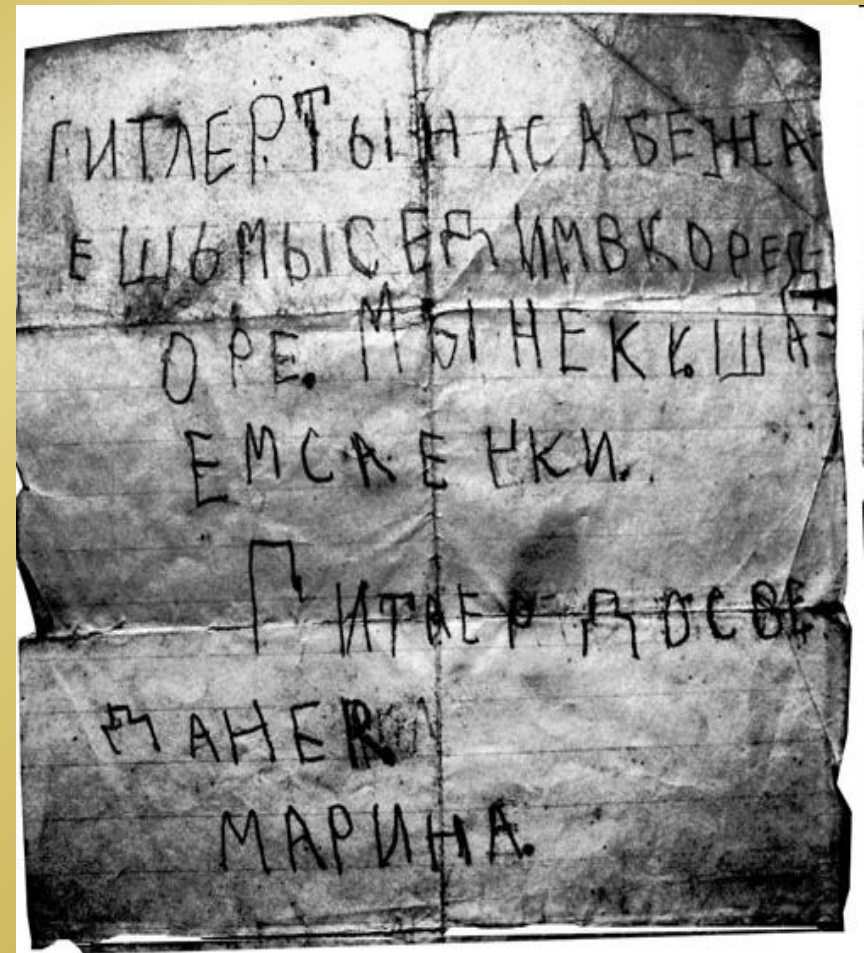 ГИТЛЕР ТЫ НАС АБЕЖА-
ЕШЬ МЫ СЕДИМ В КОРЕД
ОРЕ. МЫ НЕ КУША-
ЕМ САЕЧКИ.
ГИТЛЕР ДОСВЕ
ДАНЕЯ
МАРИНА.